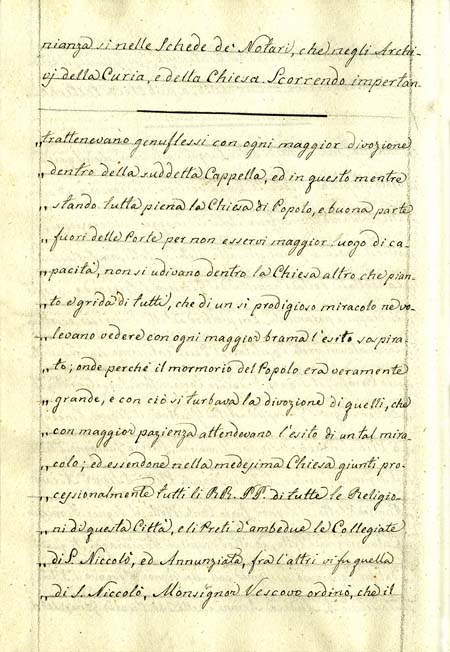 nianza si nelle Schede de' Notari, che negli Archi-
vj della Curia, e della Chiesa. Scorrendo impertan-
„ trattenevano genuflessi con ogni maggior divozione
„ dentro della suddetta Cappella, ed in questo mentre
„ stando tutta piena la Chiesa di Popolo, e buona parte
„ fuori delle Porte per non esservi maggior luogo di ca-
„ pacità, non si udivano dentro la Chiesa altro che pian-
„ to e grida di tutti, che di un si prodigioso miracolo ne vo-
„ levano vedere con ogni maggior brama l'esito sospira-
„ to; onde perchè il mormorio del Popolo era veramente
„ grande, e con ciò si turbava la divozione di quelli, che
„ con maggior pazienza attendevano l'esito di un tal mira-
„ colo; ed essendone nella medesima Chiesa giunti pro-
„ cessionalmente tutti li RR. PP. di tutte le Religio-
„ ni di questa Città, e li Preti d'ambedue le Collegiate
„ di S. Niccolò, ed Annunziata, fra l'altri vi fu quella
„ di S. Niccolò, Monsignor Vescovo ordinò, che il